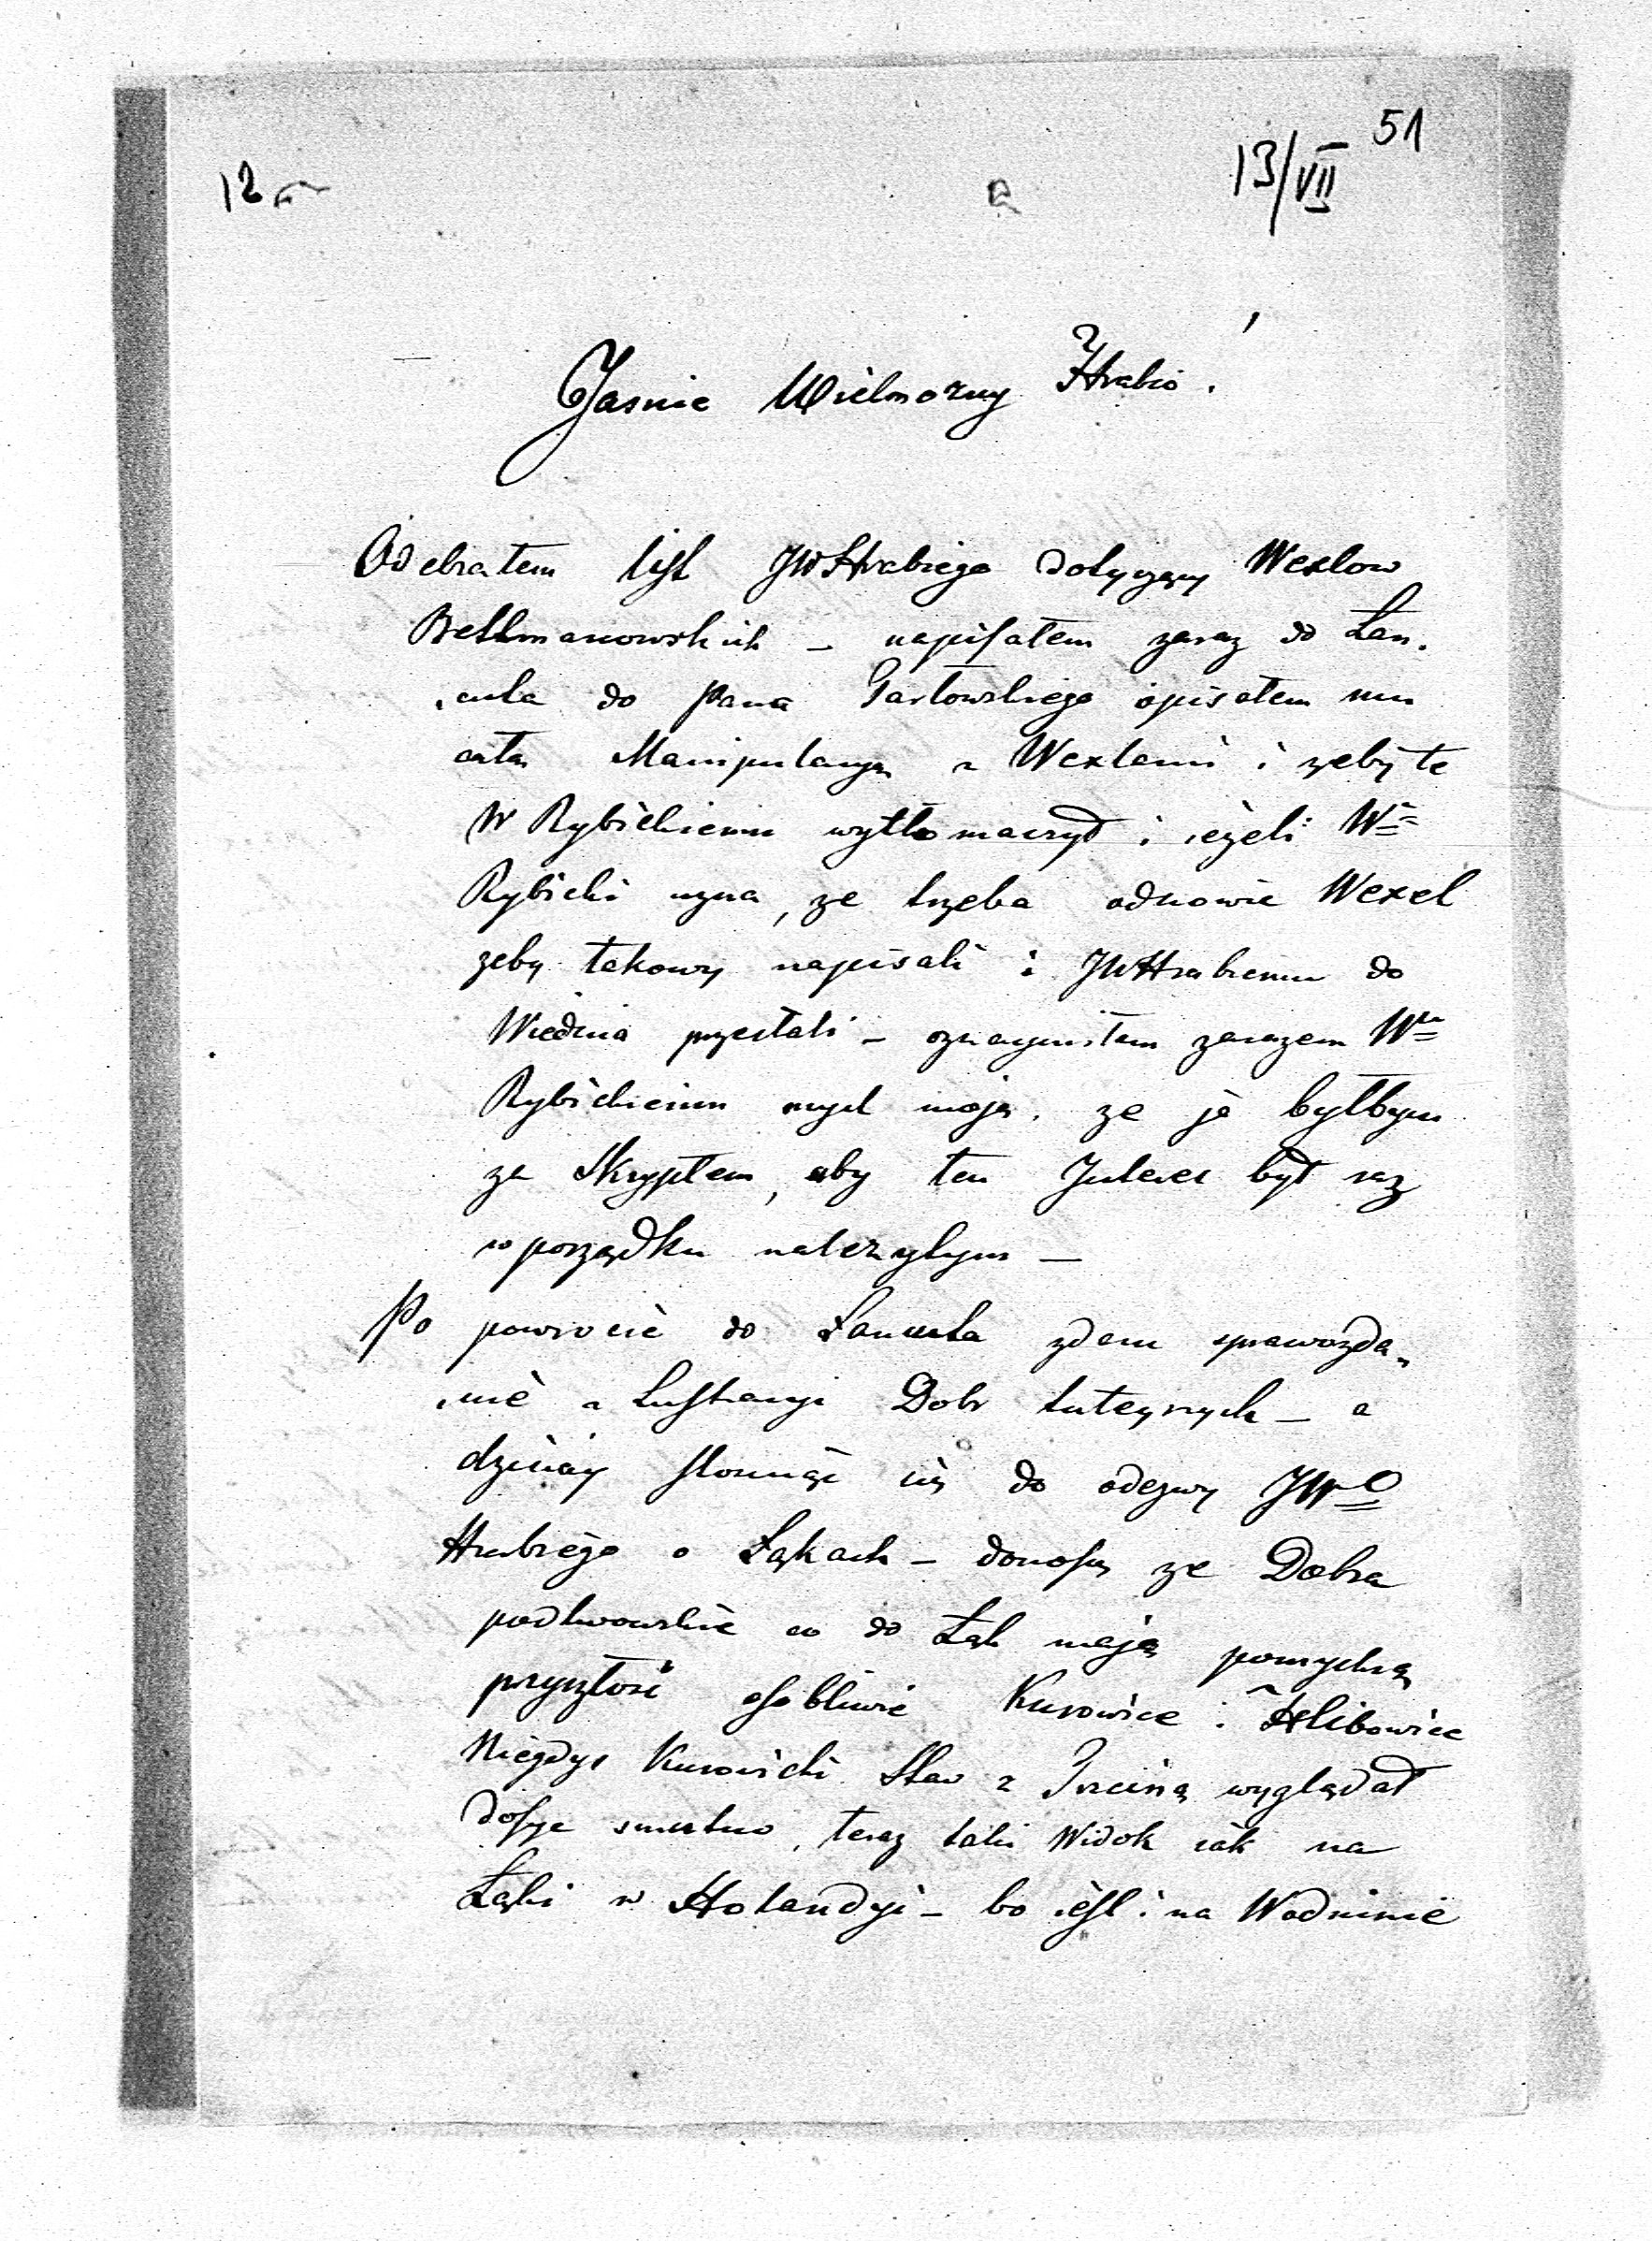 51
13/VII
12
Jasnie Wielmozny Hrabio!
Odebrałem list JWHrabiego dotyczący Wexlow
Bellmanowskich – napisałem zaraz do Łan„
„cuta do Pana opisałem mu
całą Manipulacyą z Wexlami i zeby te
W Rybickiemu wytłomaczył i ieżeli W
Rybicki uzna, ze trzeba odnowic Wexel
zeby takowy napisali i JWHrabiemu do
Wiednia przesłali – oznaymiłem zarazem W
Rybickiemu mysl moją, ze ja byłbym
za Skryptem, aby ten Interes był raz
w porządku nalezytym –
Po powrocie do Łancuta zdam sprawozda„
„nie z Lustracyi Dobr tuteyszych – a
dzisiay do odezwy JW
Hrabiego o Łąkach – donoszę ze Dobra
podlwowskie co do Łąk mają pomyslną
przyszłosc osobliwie Kurowice i Hlibowice
Niegdys Kurowicki Staw z Trciną wyglądał
dosyc smutno, teraz taki Widok iak na
Łąki w Holandyi – bo iest i na Wodninie